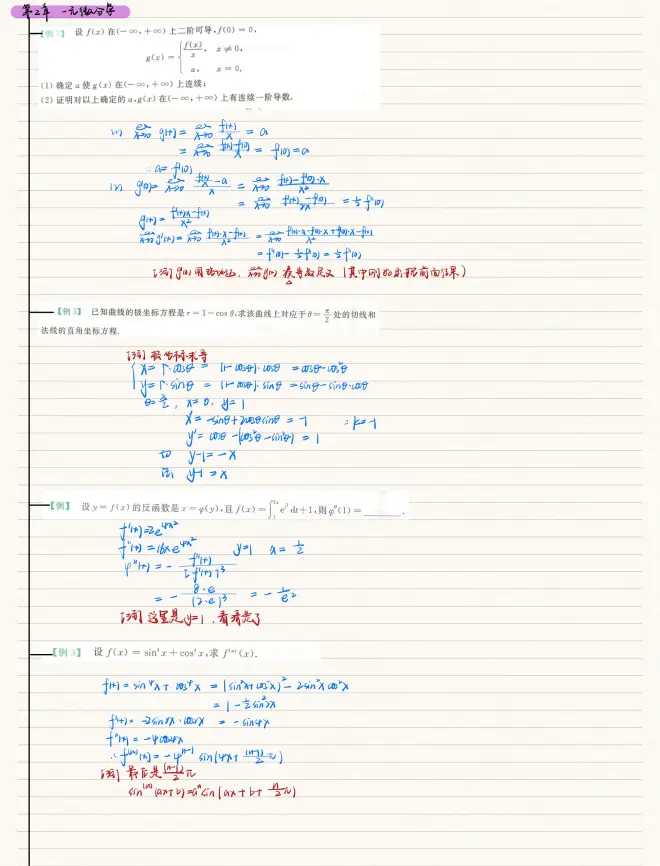 第二章 一元微分学
【例7】 设 f(x) 在(-∞,+∞)上二阶可导,f(0)=0,
g(x)={ f(x)/x, x≠0,
a, x=0.
(1) 确定 a 使 g(x) 在(-∞,+∞)上连续;
(2) 证明对以上确定的 a,g(x) 在(-∞,+∞)上有连续一阶导数.
(1) lim x→0 g(x) = lim x→0 f(x)/x = a
= lim x→0 f(x)-f(0)/x = f'(0) = a
∴ a = f'(0)
(2) g'(0) = lim x→0 (f(x)/x - a)/x = lim x→0 (f(x)-f'(0)·x)/x²
= lim x→0 (f'(x)-f'(0))/2x = ½f''(0)
g'(x) = (f'(x)x-f(x))/x²
lim x→0 g'(x) = lim x→0 (f'(x)·x-f(x))/x² = lim x→0 (f'(x)·x-f'(0)·x+f'(0)·x-f(x))/x²
= f''(0) - ½f''(0) = ½f''(0)
【例3】 已知曲线的极坐标方程是 r=1-cos θ,求该曲线上对应于 θ=π/2 处的切线和
法线的直角坐标方程.
[注] 极坐标求导
{ x = r·cosθ = (1-cosθ)·cosθ = cosθ-cos²θ
y = r·sinθ = (1-cosθ)·sinθ = sinθ-sinθ·cosθ
θ=π/2, x=0, y=1
x' = -sinθ+2cosθsinθ = -1 ∴ k=-1
y' = cosθ-(cos²θ-sin²θ) = 1
切 y-1=-x
法 y-1=x
【例】 设 y=f(x) 的反函数是 x=φ(y),且 f(x)=∫₁²ˣ e^{t²} dt+1,则 φ''(1)=______.
f'(x)=2e^{4x²}
f''(x)=16xe^{4x²} y=1 x=1/2
φ''(x) = - f''(x)/[f'(x)]³
= - 8·e/(2·e)³ = - 1/e²
[注] 这里是 y=1,看看走了
【例5】 设 f(x)=sin⁴x+cos⁴x,求 f⁽ⁿ⁾(x).
f(x)=sin⁴x+cos⁴x = (sin²x+cos²x)²-2sin²x cos²x
= 1-½sin²2x
f'(x) = -2sin2x·cos2x = -sin4x
f''(x) = -4cos4x
∴ f⁽ⁿ⁾(x) = -4ⁿ⁻¹ sin(4x+(n-1)/2 π)
[注] 最后是 (n-1)/2 π
sin⁽ⁿ⁾(ax+b)=aⁿsin(ax+b+n/2 π)